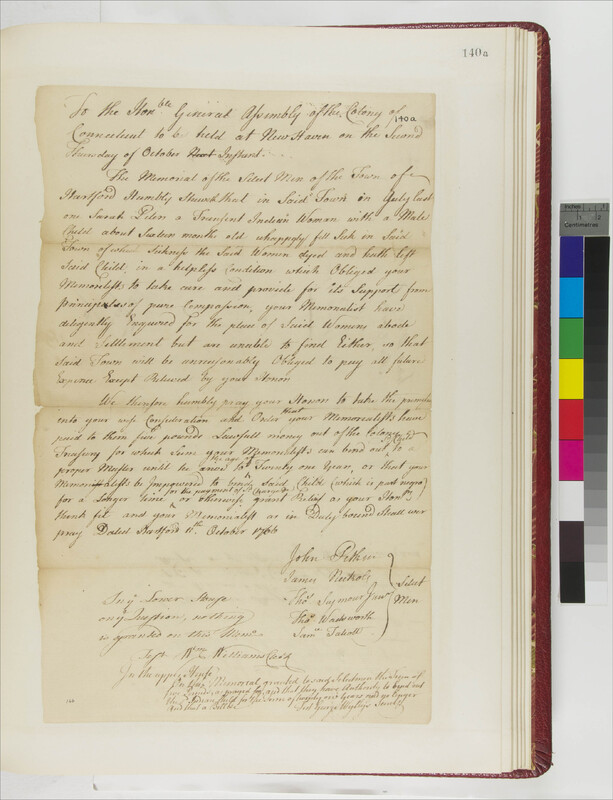 140a
To the Honble General Assembly of the Colony of
140a
Connecticut to be held at New Haven on the Second
Thursday of October Instant.
The Memorial of the Select Men of the Town of
Hartford Humbly Sheweth that in Said Town in July last
one Sarah a Transient Indian Woman with a Male
Child about Sixteen month old unhappyly fell Sick in Said
Town of which Sickness the Said Women dyed and hath left
Said Child in a helpless Condition which Obliged your
Memorialists to take care and provide for its Support from
Principles of pure Compassion, your Memorialist have
deligently Enquired for the place of Said Womans abode
and Settlement but are unable to find Either, so that
Said Town will be unreasonably Obliged to pay all future
Expence Except Relieved by your Honors
We therefore humbly pray your Honors to take the premises
into your wise Consideration and Order that your Memorialists have
paid to them five pounds Lawfull money out of the Colony
Treasury for which Sum your Memorialists can bend out sd Child to a
proper Master until he the age of Twenty one Years, or that your
Memorialists be Impowered to bind Said Child (which is part negro)
for a Longer Time for the payment of sd Charges or otherwise grant Relief as your Honrs
think fit and your Memorialist as in Duty bound Shall ever
pray Dated Hartford 11th October 1766
John
James Nickols
Thos Seymour Junr
Thos Wadsworth
Saml Talcott
Select
Men
In ye Lower House
on ye Question, nothing
is granted on this Meml
Test Wm Williams Clerk
In the upper House
On this Memorial, granted to said Selectmen the Sum of
five Pounds, as prayed for, and that they have Authority to bind out
the Indian Child for the Term of twenty one Years and no longer
and that a Bill &c
Test George Wyllys Secrety
140
Inches
Centimetres